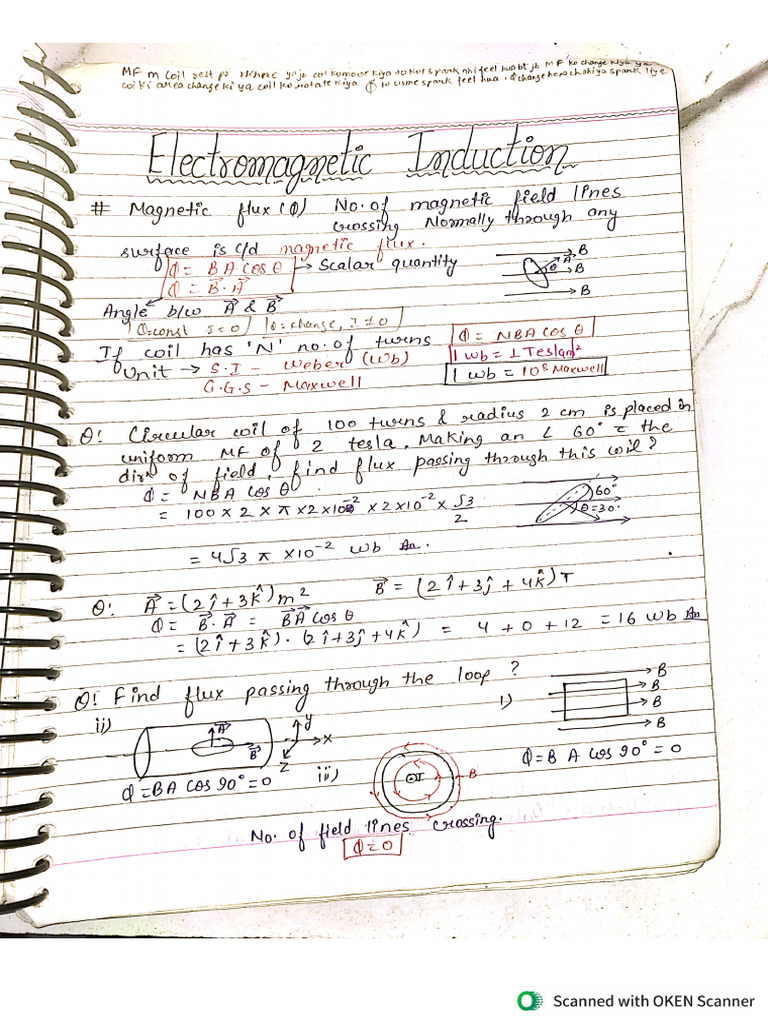 MF m coil rest pe rkhne ya jb coil ko move kiya to koi spark nhi feel hua bt jb MF ko change kiya ya
coil ki area change ki ya coil ko rotate kiya to usme spark feel hua. ϕ change hona chahiya spark k liye
Electromagnetic Induction
# Magnetic flux (ϕ) No. of magnetic field lines
crossing Normally through any
surface is c/d magnetic flux.
ϕ = BA cos θ → Scalar quantity
ϕ = B⃗.A⃗
B
θ A⃗ B
B
Angle b/w A⃗ & B⃗
ϕ=const I=0 | ϕ=change, I≠0
If coil has 'N' no. of turns ϕ = NBA cos θ
Unit → S.I - Weber (Wb) 1 wb = 1 Teslam²
G.G.S - Maxwell 1 wb = 10⁸ Maxwell
Q! Circular coil of 100 turns & radius 2 cm is placed in
uniform MF of 2 tesla. Making an ∠ 60° c̄ the
dirⁿ of field, find flux passing through this coil?
ϕ = NBA cos θ
= 100 × 2 × π × 2×10⁻² × 2×10⁻² × √3/2
60°
θ=30°
= 4√3 π ×10⁻² wb An.
Q! A⃗ = (2î + 3k̂) m² B⃗ = (2î + 3ĵ + 4k̂) T
ϕ = B⃗.A⃗ = B⃗A⃗ cos θ
= (2î + 3k̂). (2î + 3ĵ + 4k̂) = 4 + 0 + 12 = 16 wb An
Q! Find flux passing through the loop?
i) B
B
B
B
ϕ = B A cos 90° = 0
ii) A⃗ B⃗ y x z
ϕ = BA cos 90° = 0
iii) I B
No. of field lines crossing.
ϕ = 0
Scanned with OKEN Scanner